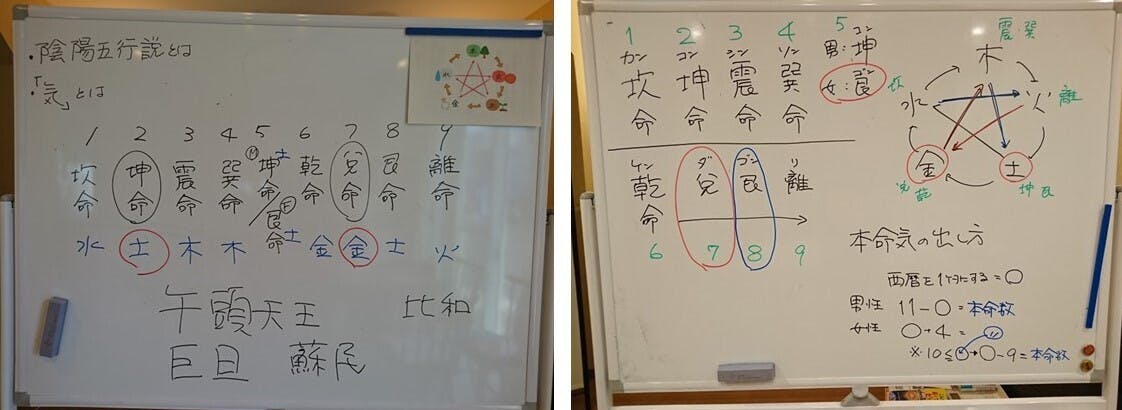 ・陰陽五行説とは
・「気」とは
1 2 3 4 5 6 7 8 9
坎命 坤命 震命 巽命 坤命/艮命 乾命 兌命 艮命 離命
水 土 木 木 土 土 金 金 土 火
午頭天王 比和
巨旦 蘇民
木
火
土
金
水
1 2 3 4 5
カン コン シン ソン 男:坤 コン
坎命 坤命 震命 巽命 女:艮 ゴン
ケン ダ ゴン リ
乾命 兌 艮 離
6 7 8 9
震 巽
木
坎 水 火 離
金 土
兌 乾 坤 艮
本命気の出し方
西暦を1ケタにする=○
男性 11-○=本命数
女性 ○+4=〃
※10≦○→○-9=本命数